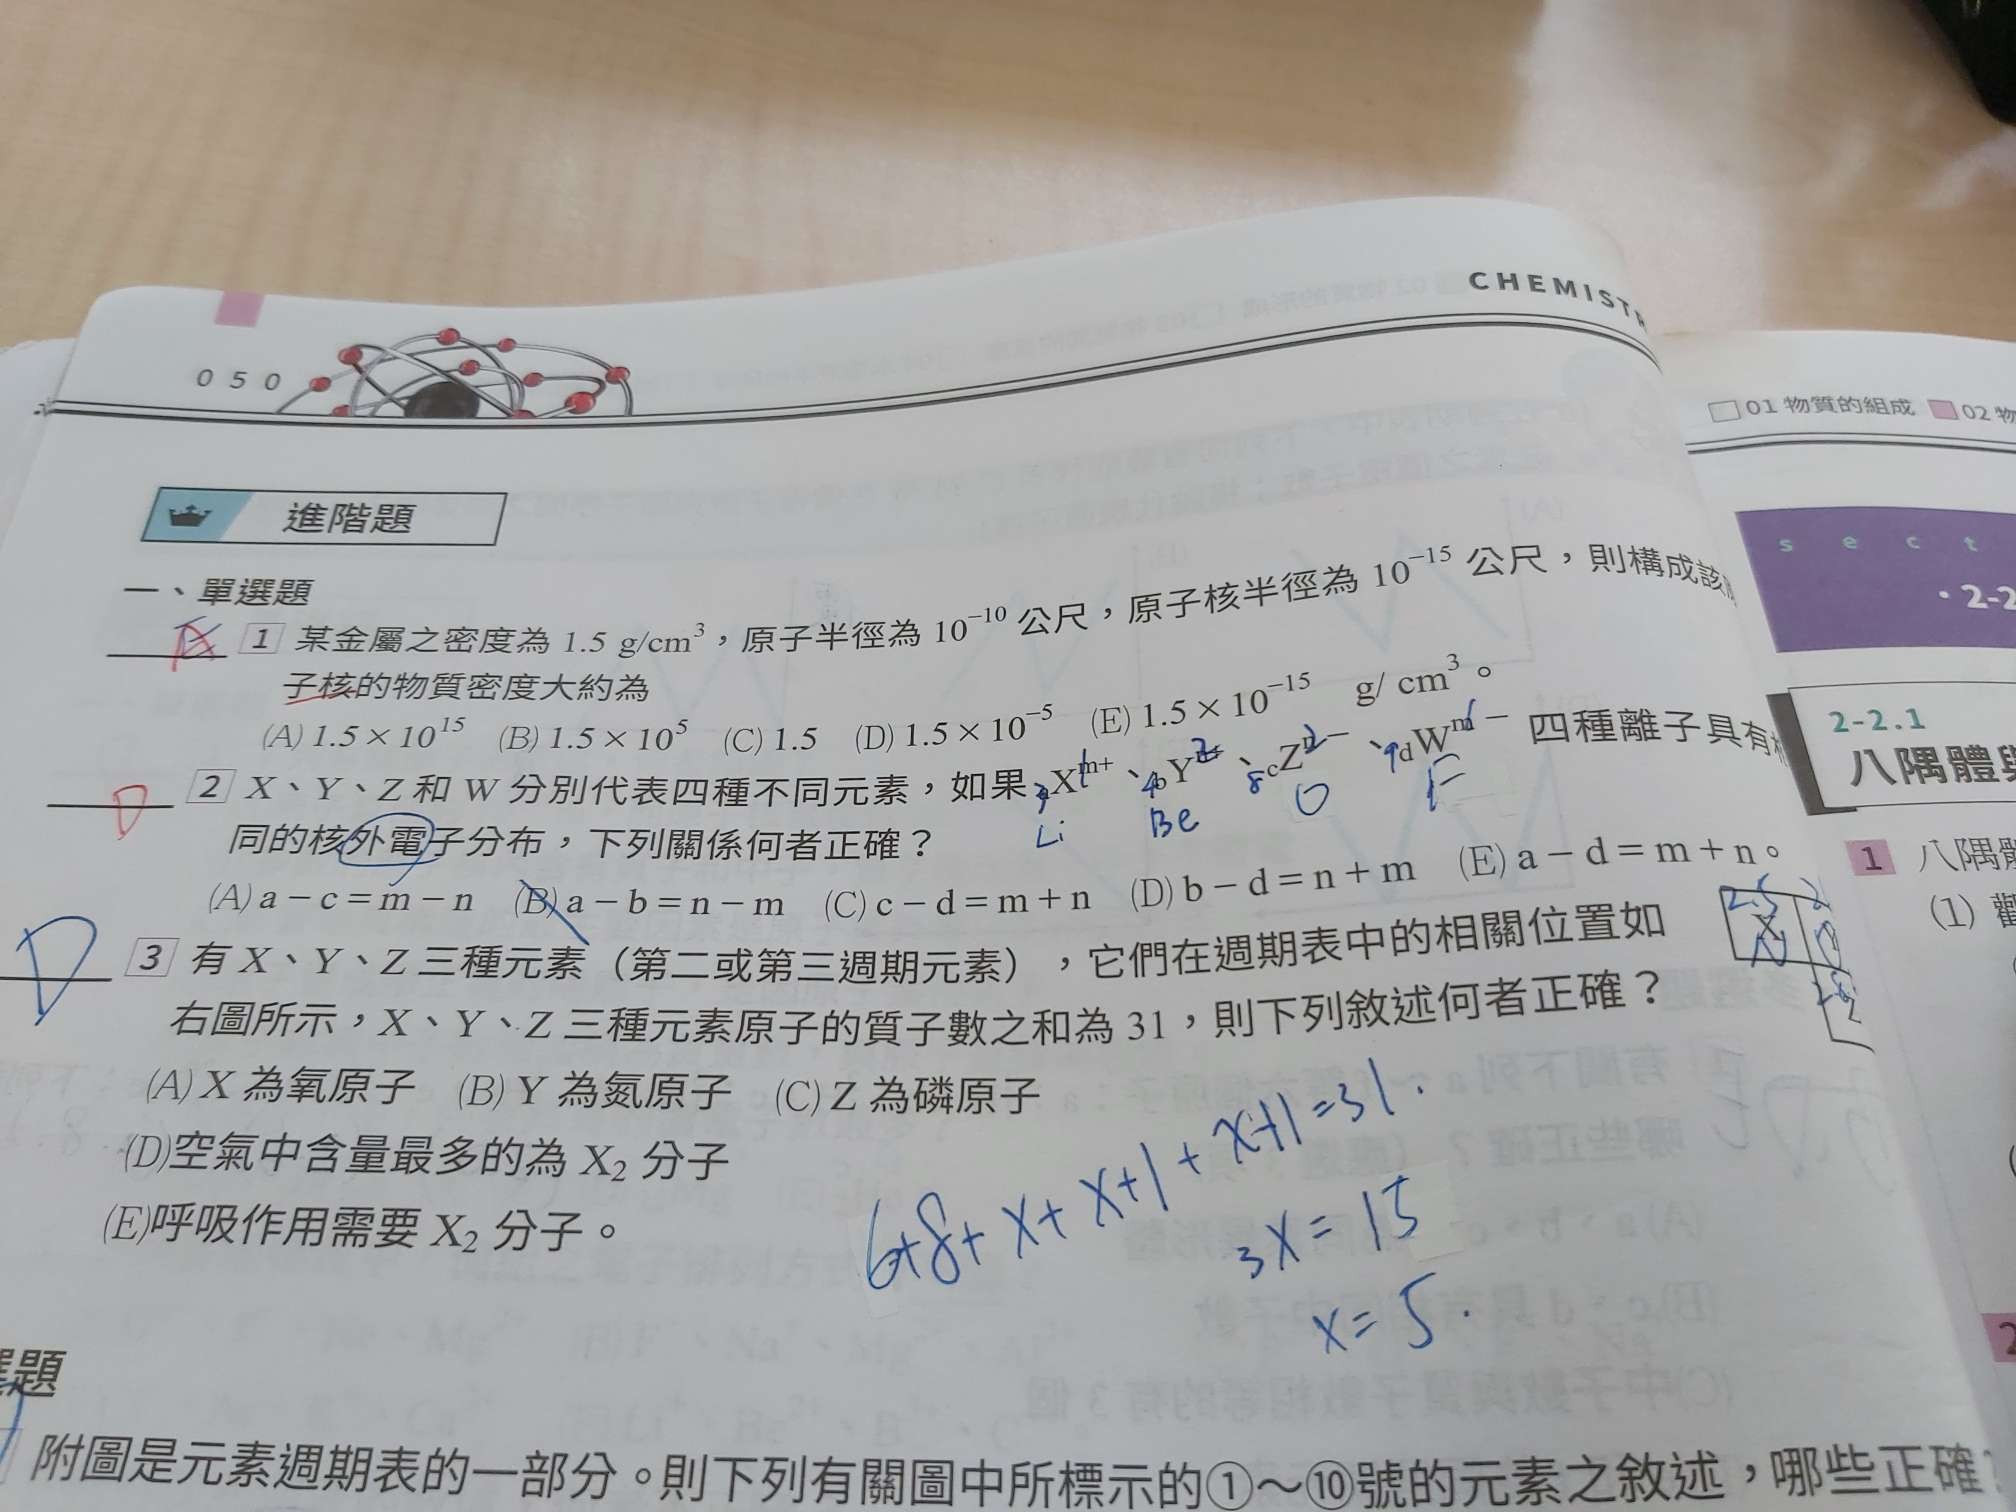 CHEMISTR
050
01 物質的組成 02 物
進階題
一、單選題
A 1 某金屬之密度為 1.5 g/cm³，原子半徑為 10⁻¹⁰ 公尺，原子核半徑為 10⁻¹⁵ 公尺，則構成該
子核的物質密度大約為
(A) 1.5 × 10¹⁵ (B) 1.5 × 10⁵ (C) 1.5 (D) 1.5 × 10⁻⁵ (E) 1.5 × 10⁻¹⁵ g/ cm³。
D 2 X、Y、Z 和 W 分別代表四種不同元素，如果 ₐXᵐ⁺、bY、cZⁿ⁻、dWᵐ⁻ 四種離子具有相
Li Be O F
同的核外電子分布，下列關係何者正確？
(A) a − c = m − n (B) a − b = n − m (C) c − d = m + n (D) b − d = n + m (E) a − d = m + n。
D 3 有 X、Y、Z 三種元素（第二或第三週期元素），它們在週期表中的相關位置如
右圖所示，X、Y、Z 三種元素原子的質子數之和為 31，則下列敘述何者正確？
X
Z
(A) X 為氧原子 (B) Y 為氮原子 (C) Z 為磷原子
(D)空氣中含量最多的為 X₂ 分子
(E)呼吸作用需要 X₂ 分子。
6+8+x+x+1+x+1=31.
3x=15
x=5.
選題
附圖是元素週期表的一部分。則下列有關圖中所標示的①～⑩號的元素之敘述，哪些正確？
sect
·2-2
2-2.1
八隅體與
1 八隅體
(1)
2